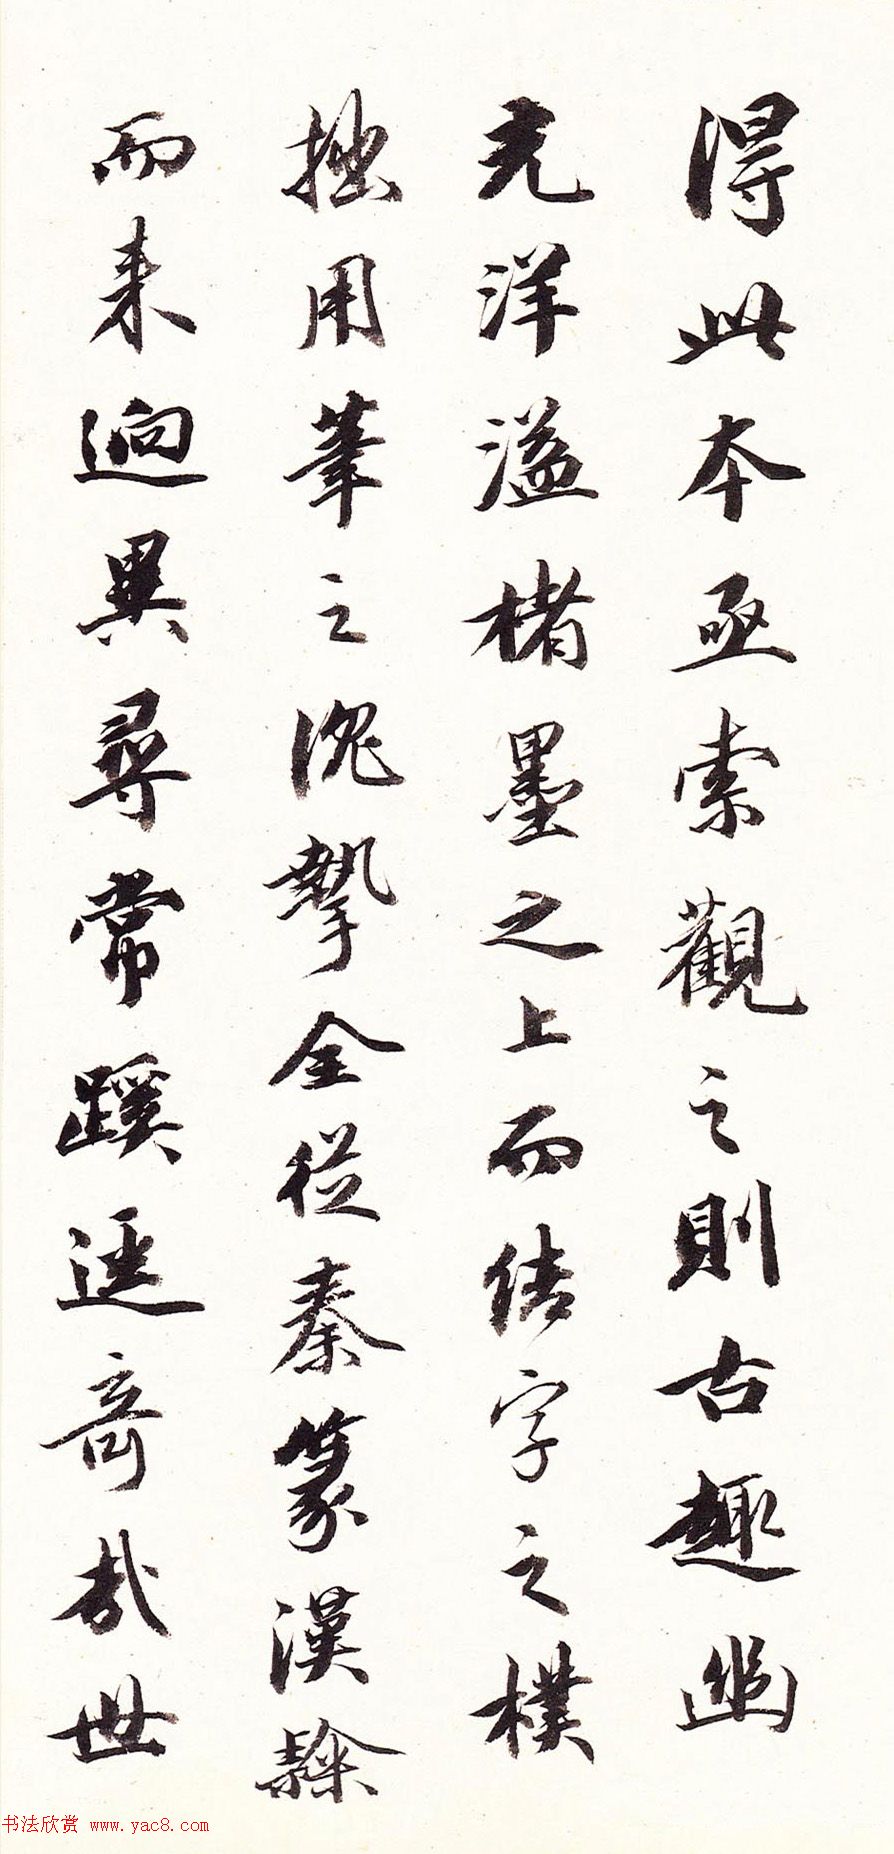 得此本亟索觀之則古趣幽
光洋溢楮墨之上而結字之樸
拙用筆之沉摯全從秦篆漢隸
而來迥異尋常蹊逕奇哉世
书法欣赏 www.yac8.com